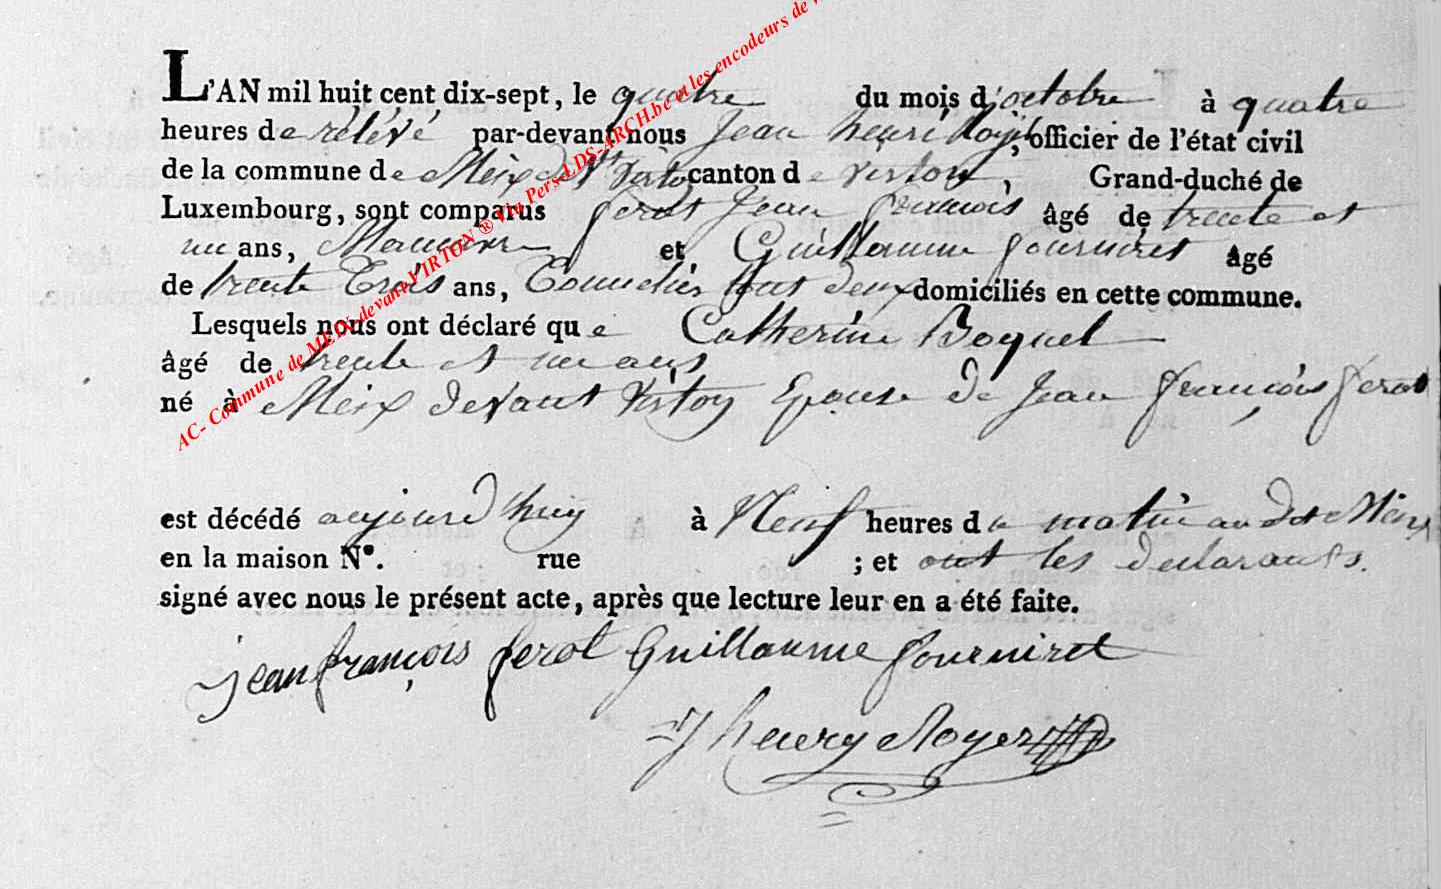 L'AN mil huit cent dix-sept, le quatre du mois d'octobre à quatre
heures de rélévé par-devant nous Jean henri Royer, officier de l'état civil
de la commune de Meix dt Virton canton de virton, Grand-duché de
Luxembourg, sont comparus ferot Jean françois âgé de trente et
un ans, et Guillaume fourniret âgé
de trente trois ans, tout deux domiciliés en cette commune.
Lesquels nous ont déclaré que Catherine Boquel
âgé de trente et un ans
né à Meix devant Virton Epouse de Jean françois ferot
est décédé aujourd'huy à Neuf heures du matin au dit Meix
en la maison N°. rue ; et ont les declarants.
signé avec nous le présent acte, après que lecture leur en a été faite.
jean françois ferot Guillaume fourniret
J henry Royer
AC- Commune de MEIX-devant-VIRTON ® Via Pers-LDS-ARCH.be et les encodeurs de